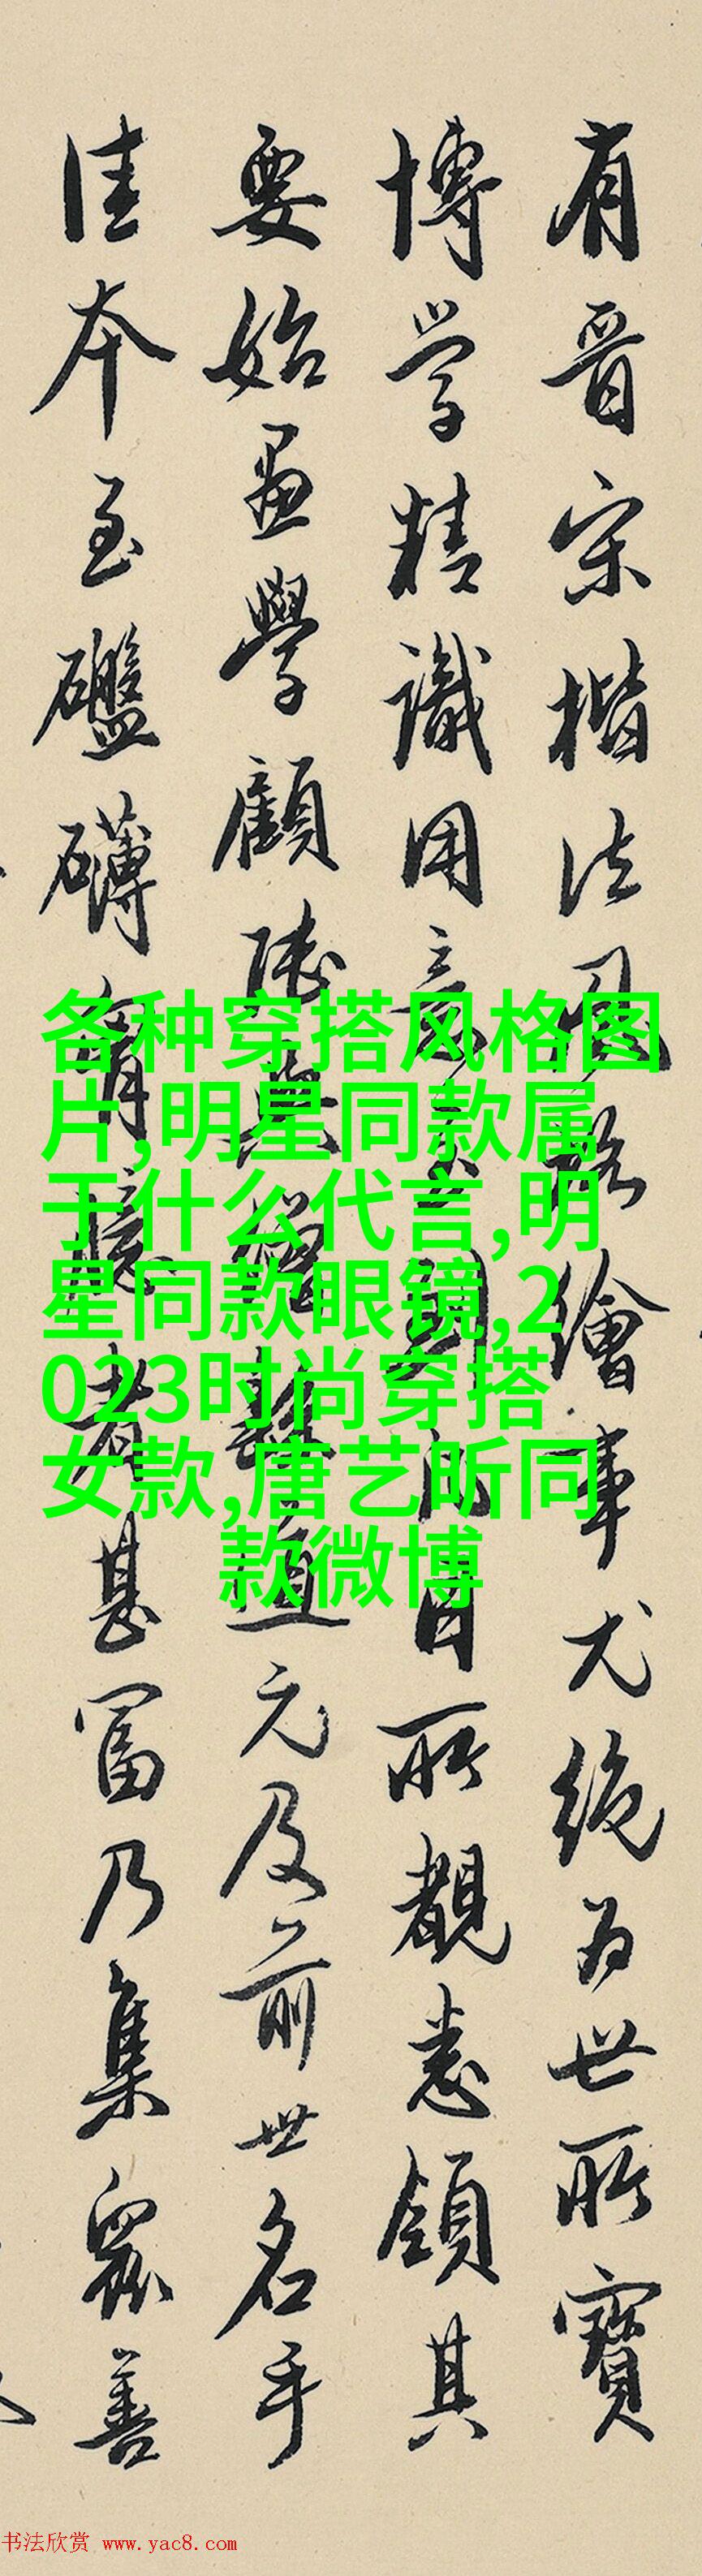 有晋宋楷法風格繪事尤绝为世所寶
博学精識用意

目所覩悉領其
要始畫學顧陸

元及前世名手
佳本至礠礴胷臆者甚富乃集眾善
各种穿搭风格图
片,明星同款属
于什么代言,明
星同款眼镜,2
023时尚穿搭
女款,唐艺昕同
款微博
书法欣赏 www.yac8.com